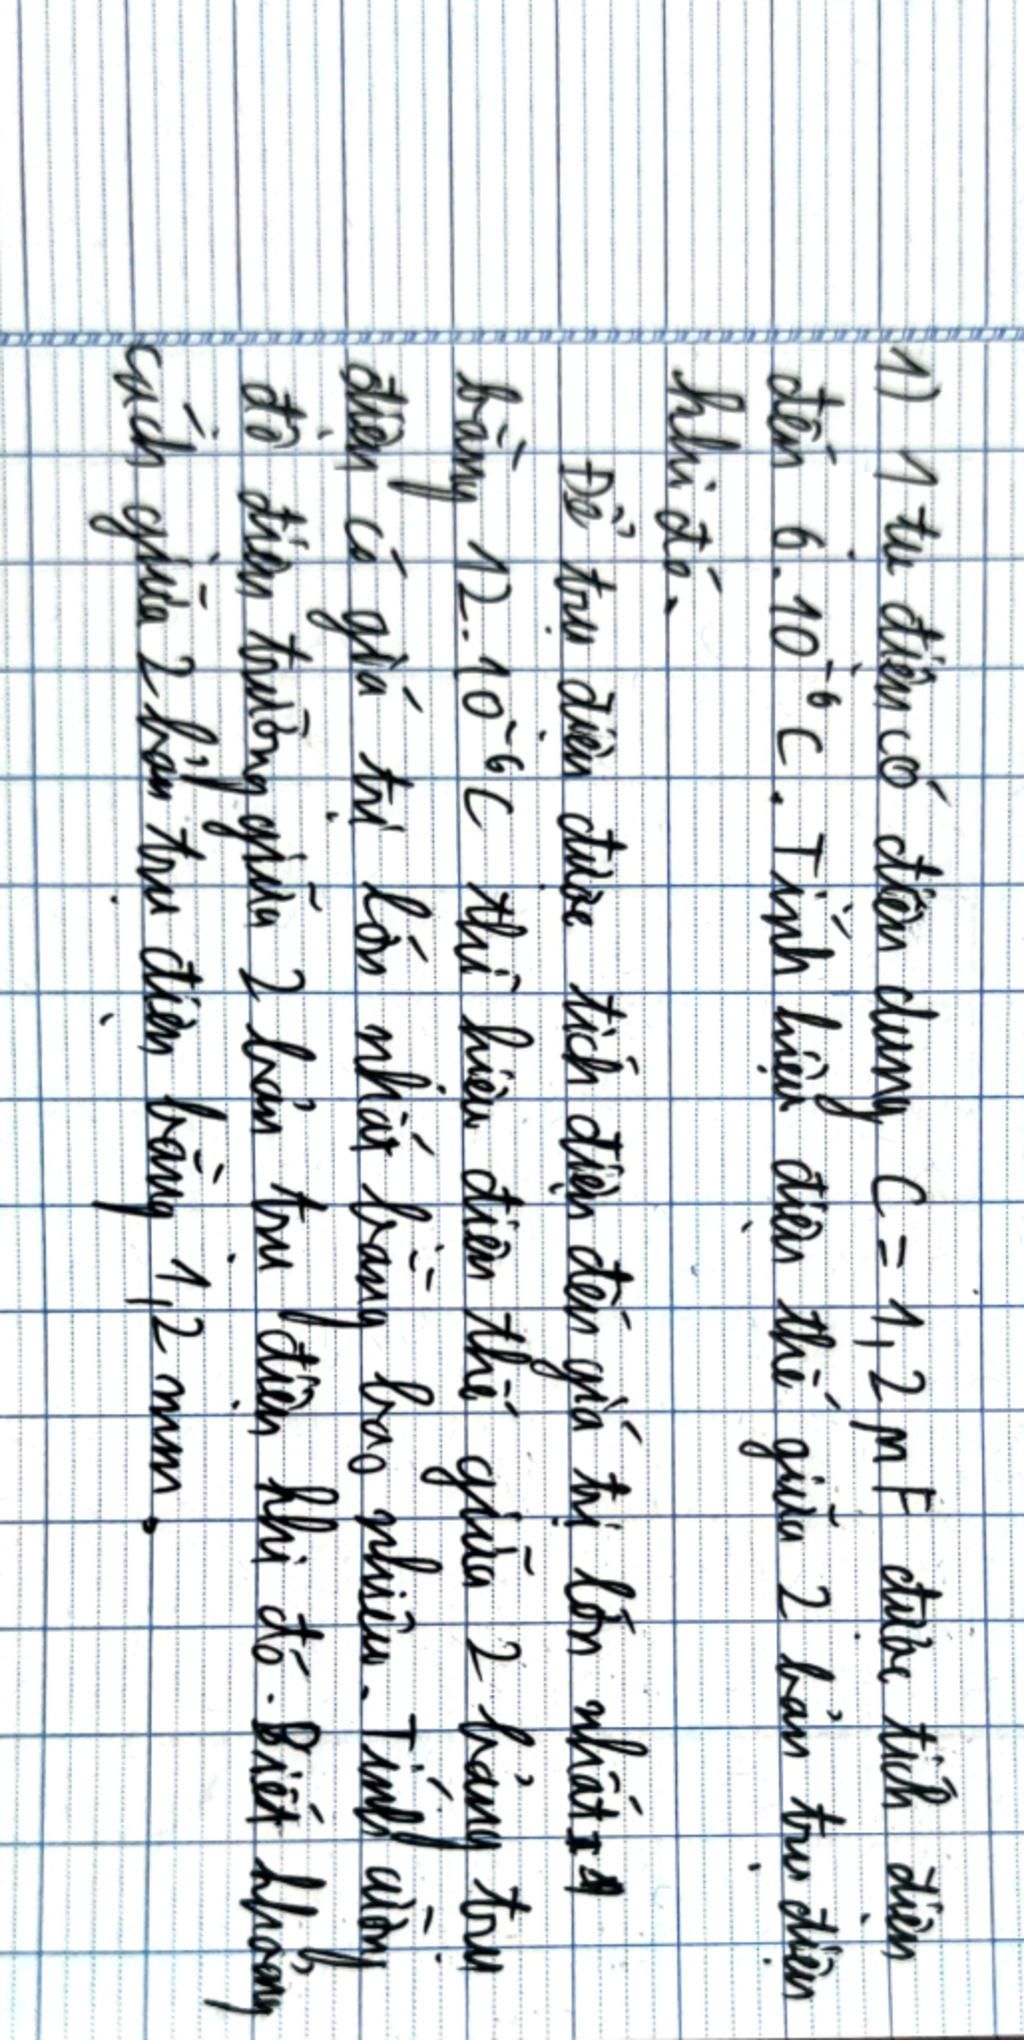 1) 1 tụ điện có điện dung C = 1,2 μF được tích điện
đến 6.10⁻⁶ C. Tính hiệu điện thế giữa 2 bản tụ điện
khi đó.
Để trụ điện được tích điện đến giá trị lớn nhất
bằng 12.10⁻⁶ C thì hiệu điện thế giữa 2 bảng trụ
điện có giá trị lớn nhất bằng bao nhiêu. Tính cường
độ điện trường giữa 2 bản trụ điện khi đó. Biết khoảng
cách giữa 2 bản trụ điện bằng 1,2 mm.